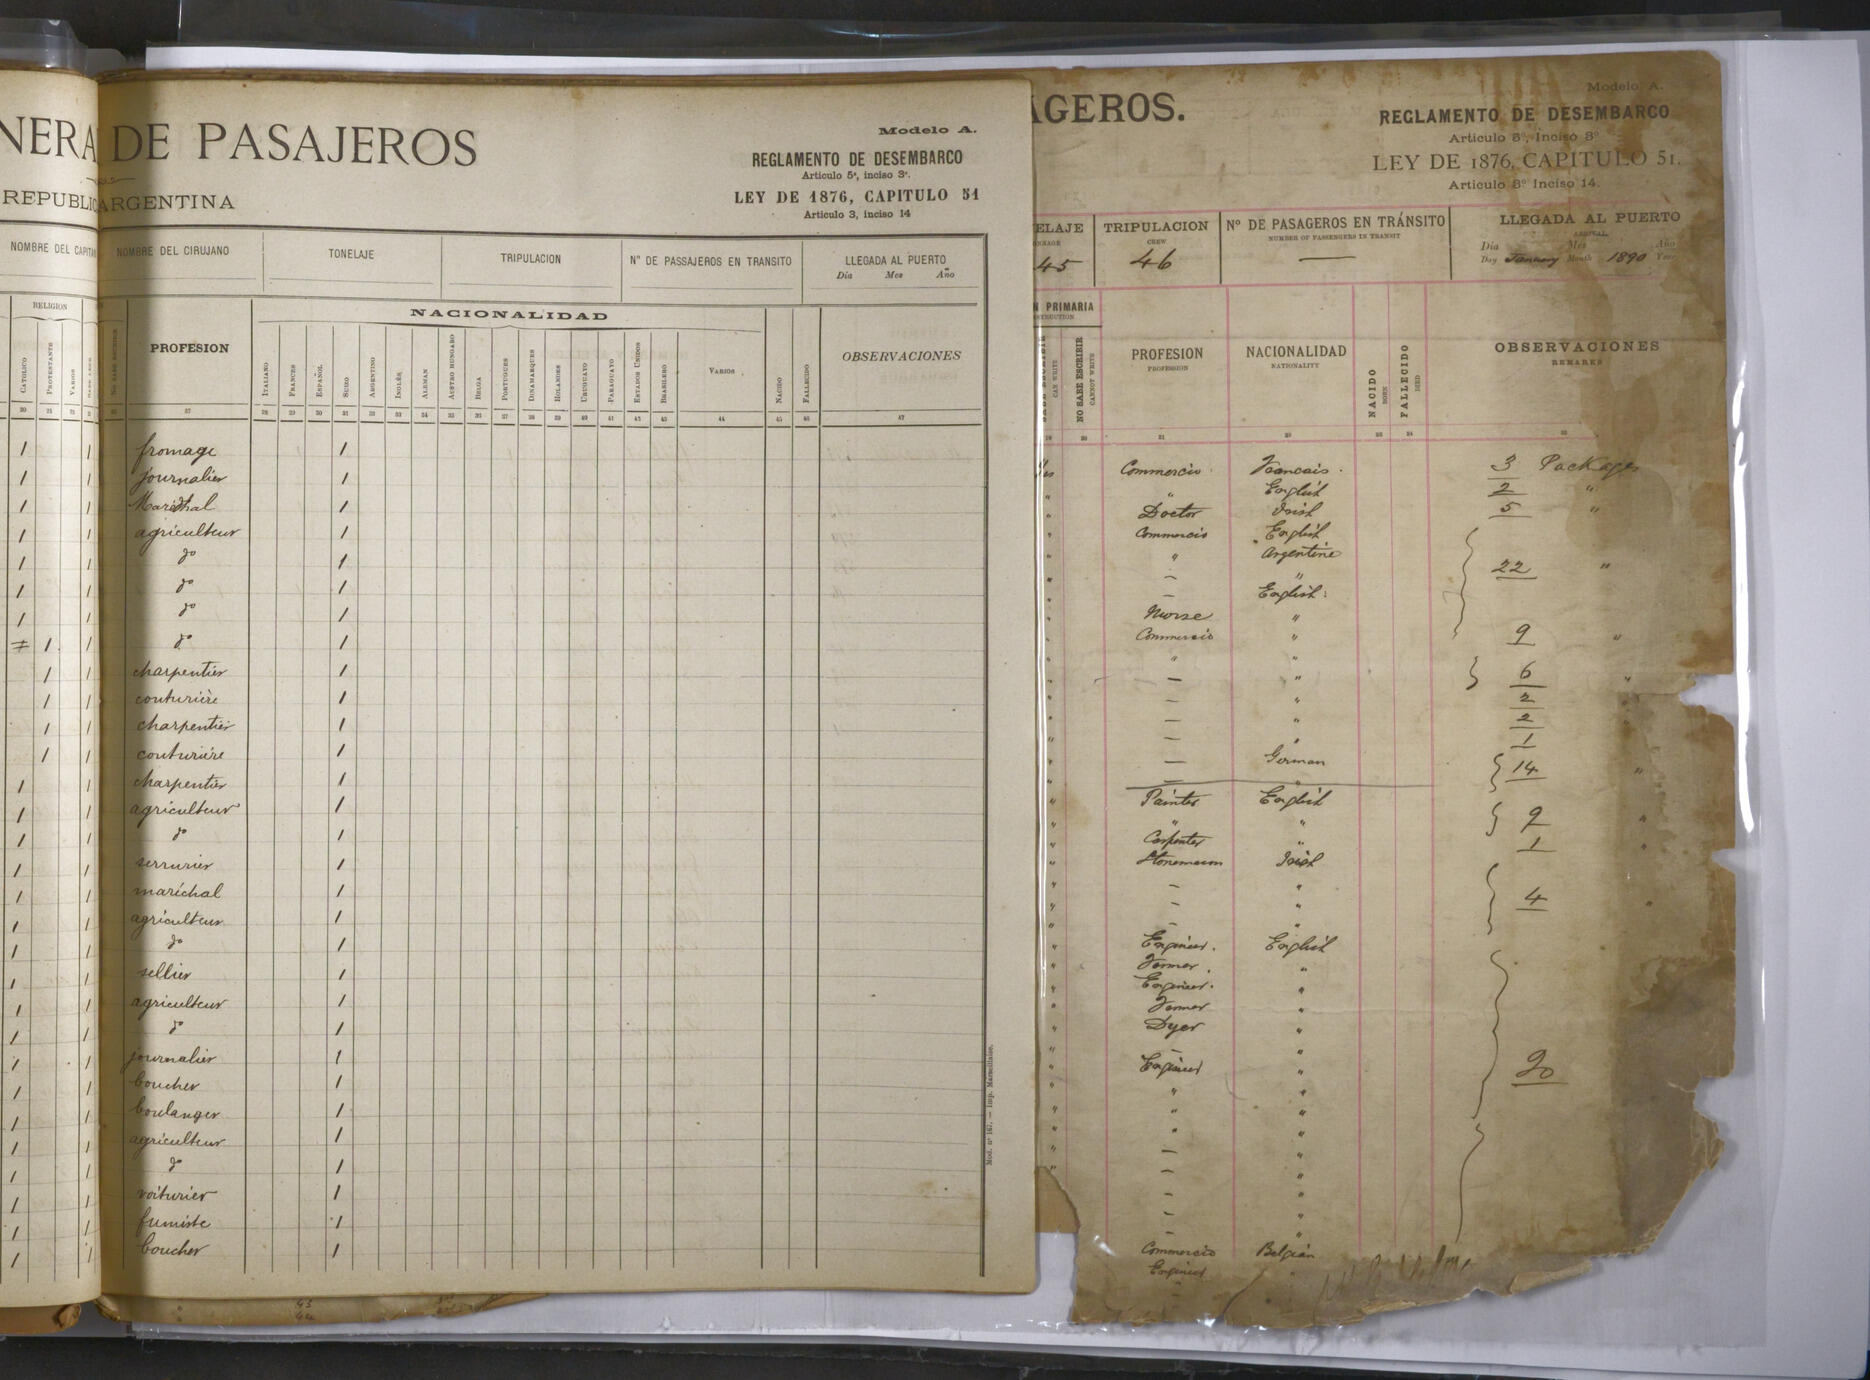 NERA DE PASAJEROS
REPUBLIC ARGENTINA
Modelo A.
REGLAMENTO DE DESEMBARCO
Articulo 5º, inciso 3º.
LEY DE 1876, CAPITULO 51
Articulo 3, inciso 14
NOMBRE DEL CAPITAN
NOMBRE DEL CIRUJANO
TONELAJE
TRIPULACION
Nº DE PASSAJEROS EN TRANSITO
LLEGADA AL PUERTO
Día Mes Año
RELIGION
CATOLICO
PROTESTANTE
VARIOS
PROFESION
NACIONALIDAD
ITALIANO
FRANCES
ESPAÑOL
SUIZO
ARGENTINO
INGLÉS
ALEMAN
AUSTRO HUNGARO
BELGA
PORTUGUES
DINAMARQUES
HOLANDES
URUGUAYO
PARAGUAYO
ESTADOS UNIDOS
BRASILERO
VARIOS
NACIDO
FALLECIDO
OBSERVACIONES
20 21 22 27 28 29 30 31 32 33 34 35 36 37 38 39 40 41 42 43 44 45 46 47
1 1 fromage 1
1 1 journalier 1
1 1 Maréchal 1
1 1 agriculteur 1
1 1 do 1
1 1 do 1
1 1 do 1
1 1 do 1
1 1 charpentier 1
1 1 couturière 1
1 1 charpentier 1
1 1 couturière 1
1 1 charpentier 1
1 1 agriculteur 1
1 1 do 1
1 1 serrurier 1
1 1 maréchal 1
1 1 agriculteur 1
1 1 do 1
1 1 sellier 1
1 1 agriculteur 1
1 1 do 1
1 1 journalier 1
1 1 boucher 1
1 1 boulanger 1
1 1 agriculteur 1
1 1 do 1
1 1 voiturier 1
1 1 fumiste 1
1 1 boucher 1
Mod. nº 167. — Imp. Marseillaise.
43
44
AGEROS.
Modelo A.
REGLAMENTO DE DESEMBARCO
Articulo 5º, Inciso 3º
LEY DE 1876, CAPITULO 51.
Articulo 3º Inciso 14.
ELAJE
NNAGE
45
TRIPULACION
CREW
46
Nº DE PASAGEROS EN TRÁNSITO
NUMBER OF PASSENGERS IN TRANSIT
—
LLEGADA AL PUERTO
ARRIVAL
Dia Mes Año
Day January Month 1890 Year
N PRIMARIA
STRUCTION
SABE ESCRIBIR
CAN WRITE
NO SABE ESCRIBIR
CANNOT WRITE
PROFESION
PROFESSION
NACIONALIDAD
NATIONALITY
NACIDO
BORN
FALLECIDO
DIED
OBSERVACIONES
REMARKS
19 20 21 22 23 24 25
Yes Commercio Francais 3 Packages
" " English 2 "
" Doctor Irish 5 "
" Commercio English
" " Argentine
" — " 22 "
" — English
" Nurse "
" Commercio " 9 "
" " "
" — " 6 "
" — " 2
" — " 2
" — " 1
" — German 14 "
" — "
" Painter English
" " " 9 "
" Carpenter " 1 "
" Stonemason Irish
" — " 4 "
" — "
" Engineer English
" Farmer "
" Engineer "
" Farmer "
" Dyer "
" — "
" Engineer " 20
" " "
" " "
" " "
" — "
" — "
— "
— "
Commercio Belgian
Engineer